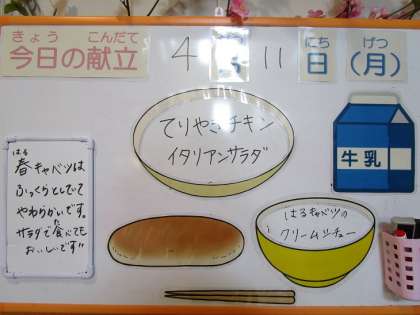 きょう こんだて
今日の献立
4月11日(月)
がつ にち げつ
てりやきチキン
イタリアンサラダ
牛乳
はる
春キャベツは
ふっくらとしていて
やわらかいです。
サラダで食べても
おいしいです!!
はるキャベツの
クリームシチュー